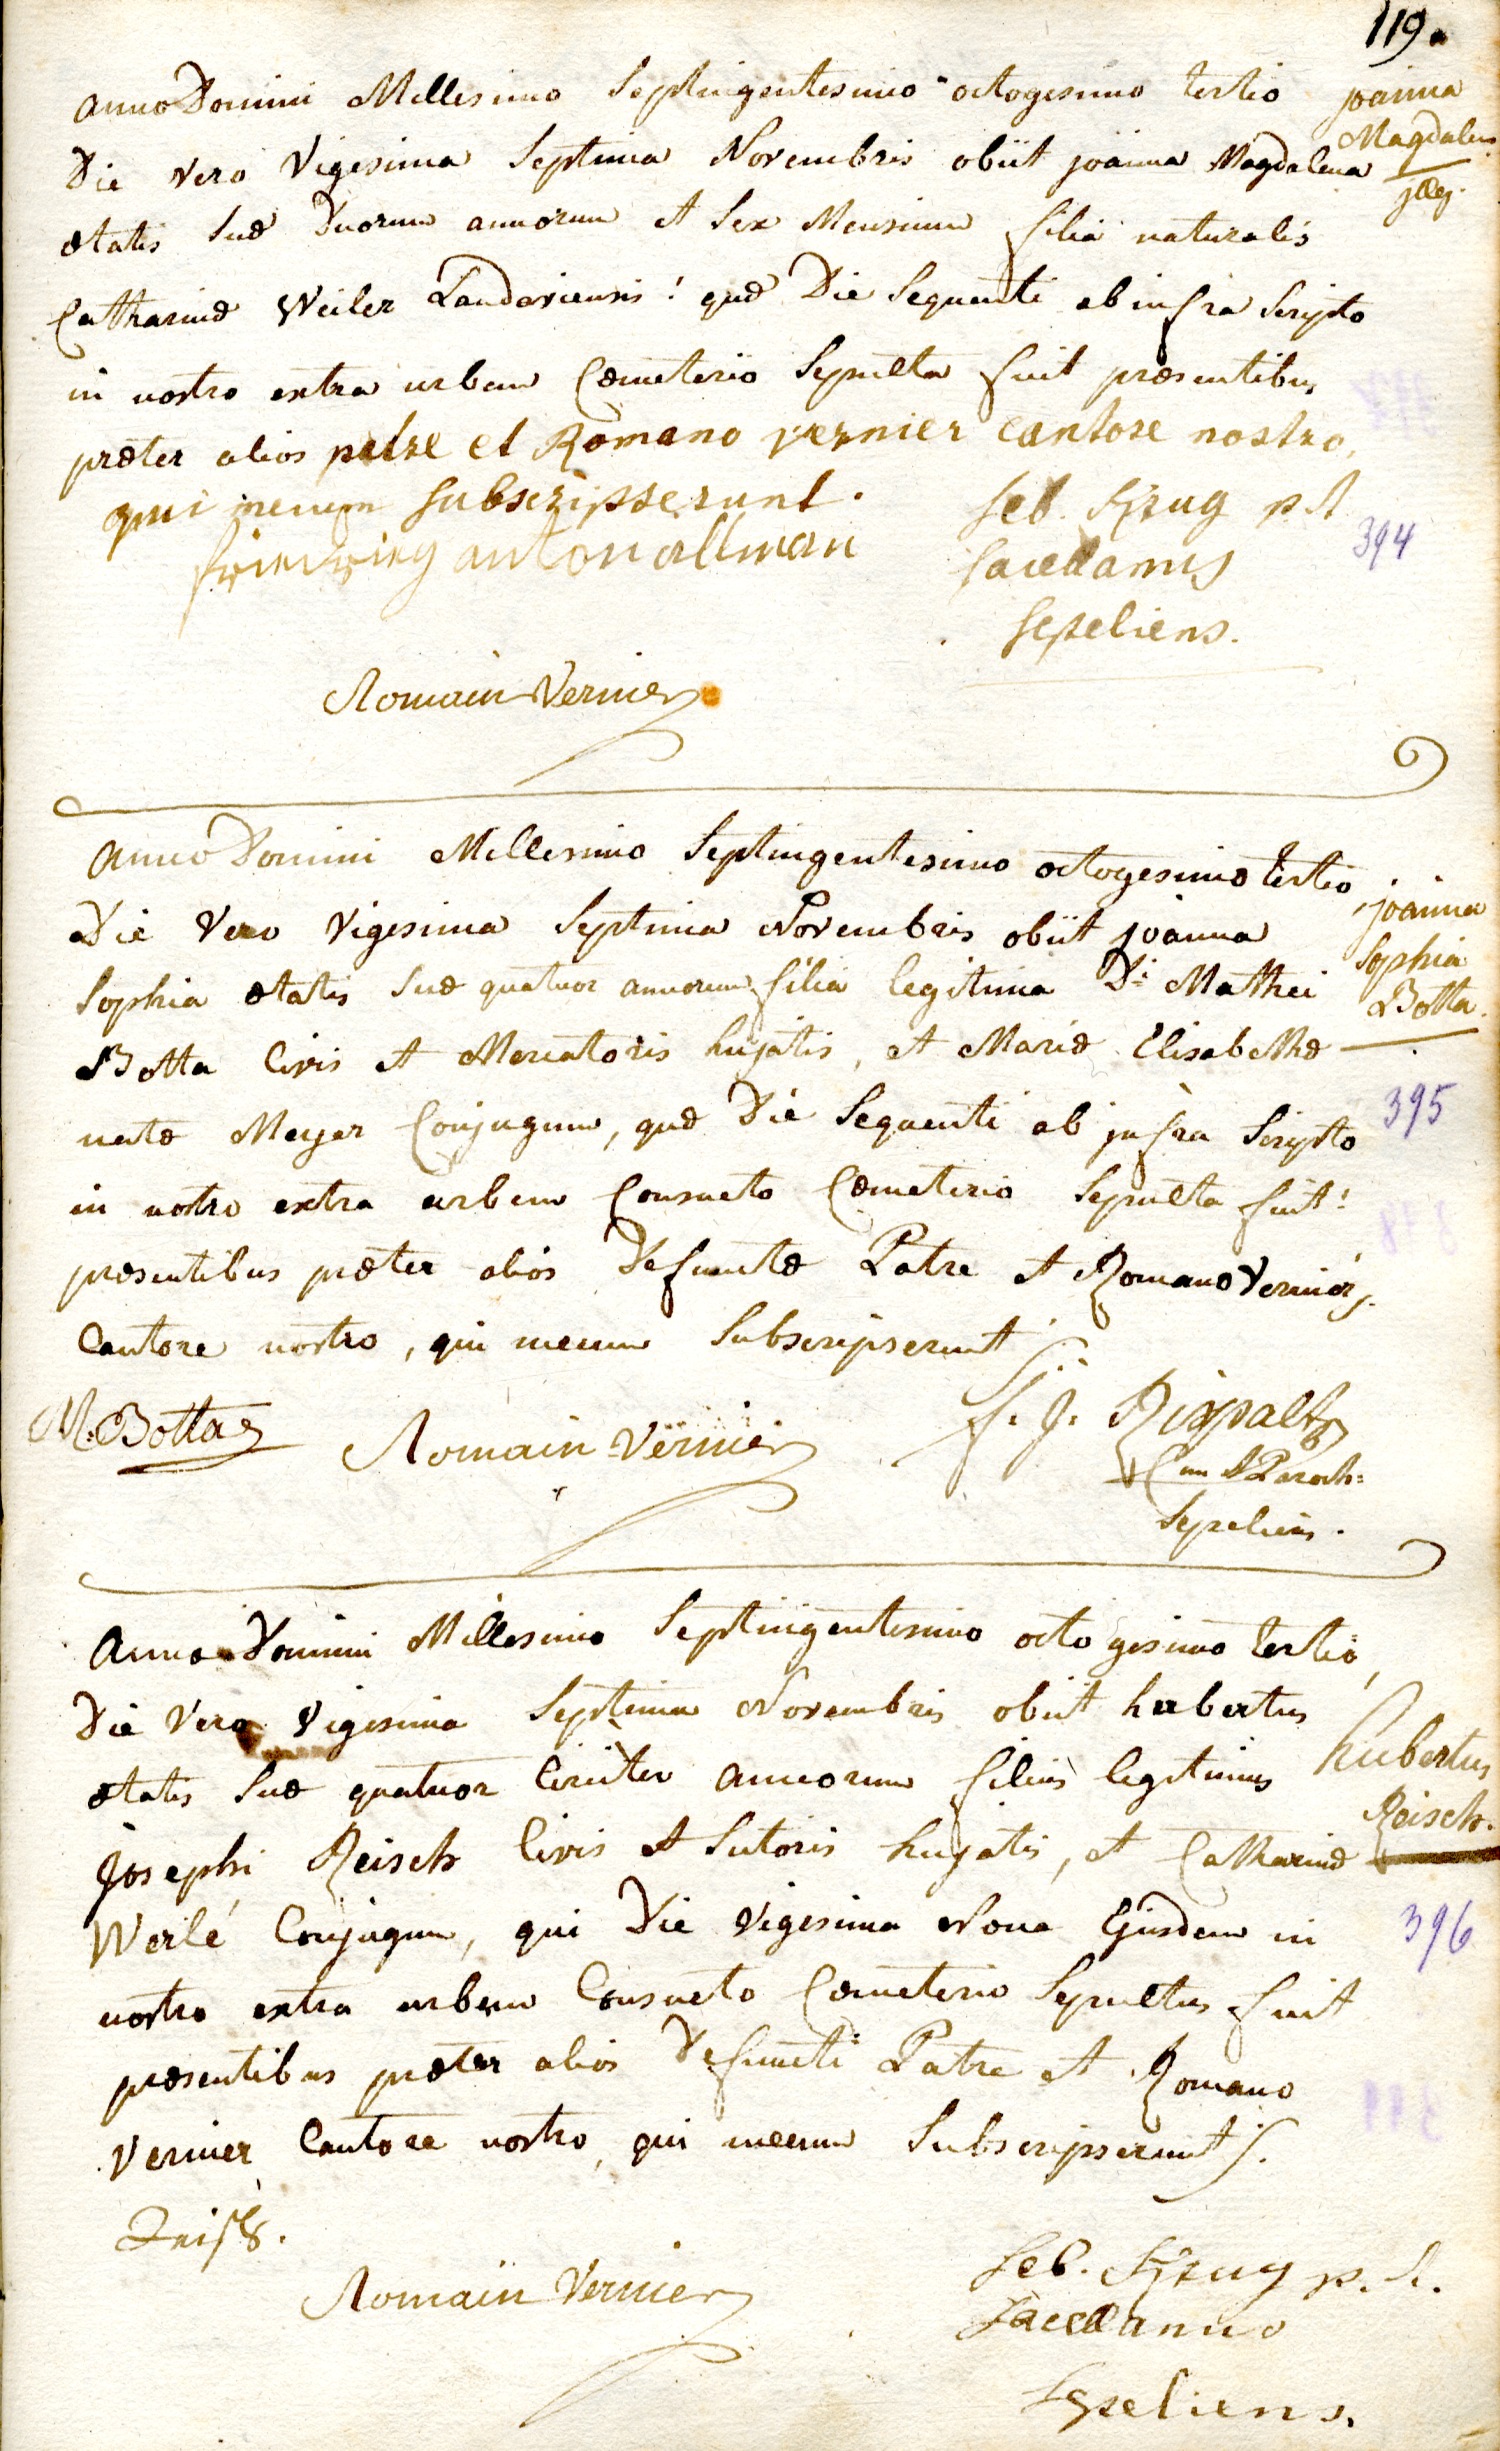 119.
anno Domini Millesimo Septingentesimo octogesimo tertio
Die vero Vigesima Septima Novembris obiit joanna Magdalena
joanna
Magdalena
jlleg.
ætatis suæ Duorum annorum et Sex Mensium filia naturalis
Catharinæ Weiler Landaviensis! quæ Die Sequenti ab infra Scripto
in nostro extra urbem Cœmeterio Sepulta fuit præsentibus
præter alios patre et Romano vernier cantore nostro,
qui mecum subscripserunt.
anton allman
Seb. Krug p.t.
Sacellanus
sepeliens.
394
Romain Vernier
anno Domini Millesimo Septingentesimo octogesimo tertio,
Die Vero Vigesima Septima Novembris obiit joanna
joanna
Sophia
Botta.
Sophia ætatis suæ quatuor annorum filia legitima Di Mathei
Botta Civis et Mercatoris hujatis, et Mariæ Elisabethæ
natæ Meyer Conjugum, quæ Die Sequenti ab jnfra Scripto
395
in nostro extra urbem Consueto Cœmeterio Sepulta fuit!
præsentibus præter alios Defunctæ Patre et Romano Vernier
Cantore nostro, qui mecum Subscripserunt
M. Botta
Romain Vernier
f. J. Rixpaltz
Can et Paroch:
Sepeliens.
Anno Domini Millesimo Septingentesimo octogesimo tertio,
Die Vero Vigesima Septima Novembris obiit hubertus
ætatis suæ quatuor Circiter annorum filius legitimus
hubertus
Reisch.
Josephi Reisch Civis et Sutoris hujatis, et Catharinæ
Werlé Conjugum, qui Die Vigesima Nona Ejusdem in
396
nostro extra urbem Consueto Cœmeterio Sepultus fuit
præsentibus præter alios Defuncti Patre et Romano
Vernier Cantore nostro, qui mecum Subscripserunt.
Reisch.
Romain Vernier
Seb. Krug p.t.
Sacellanus
Sepeliens.